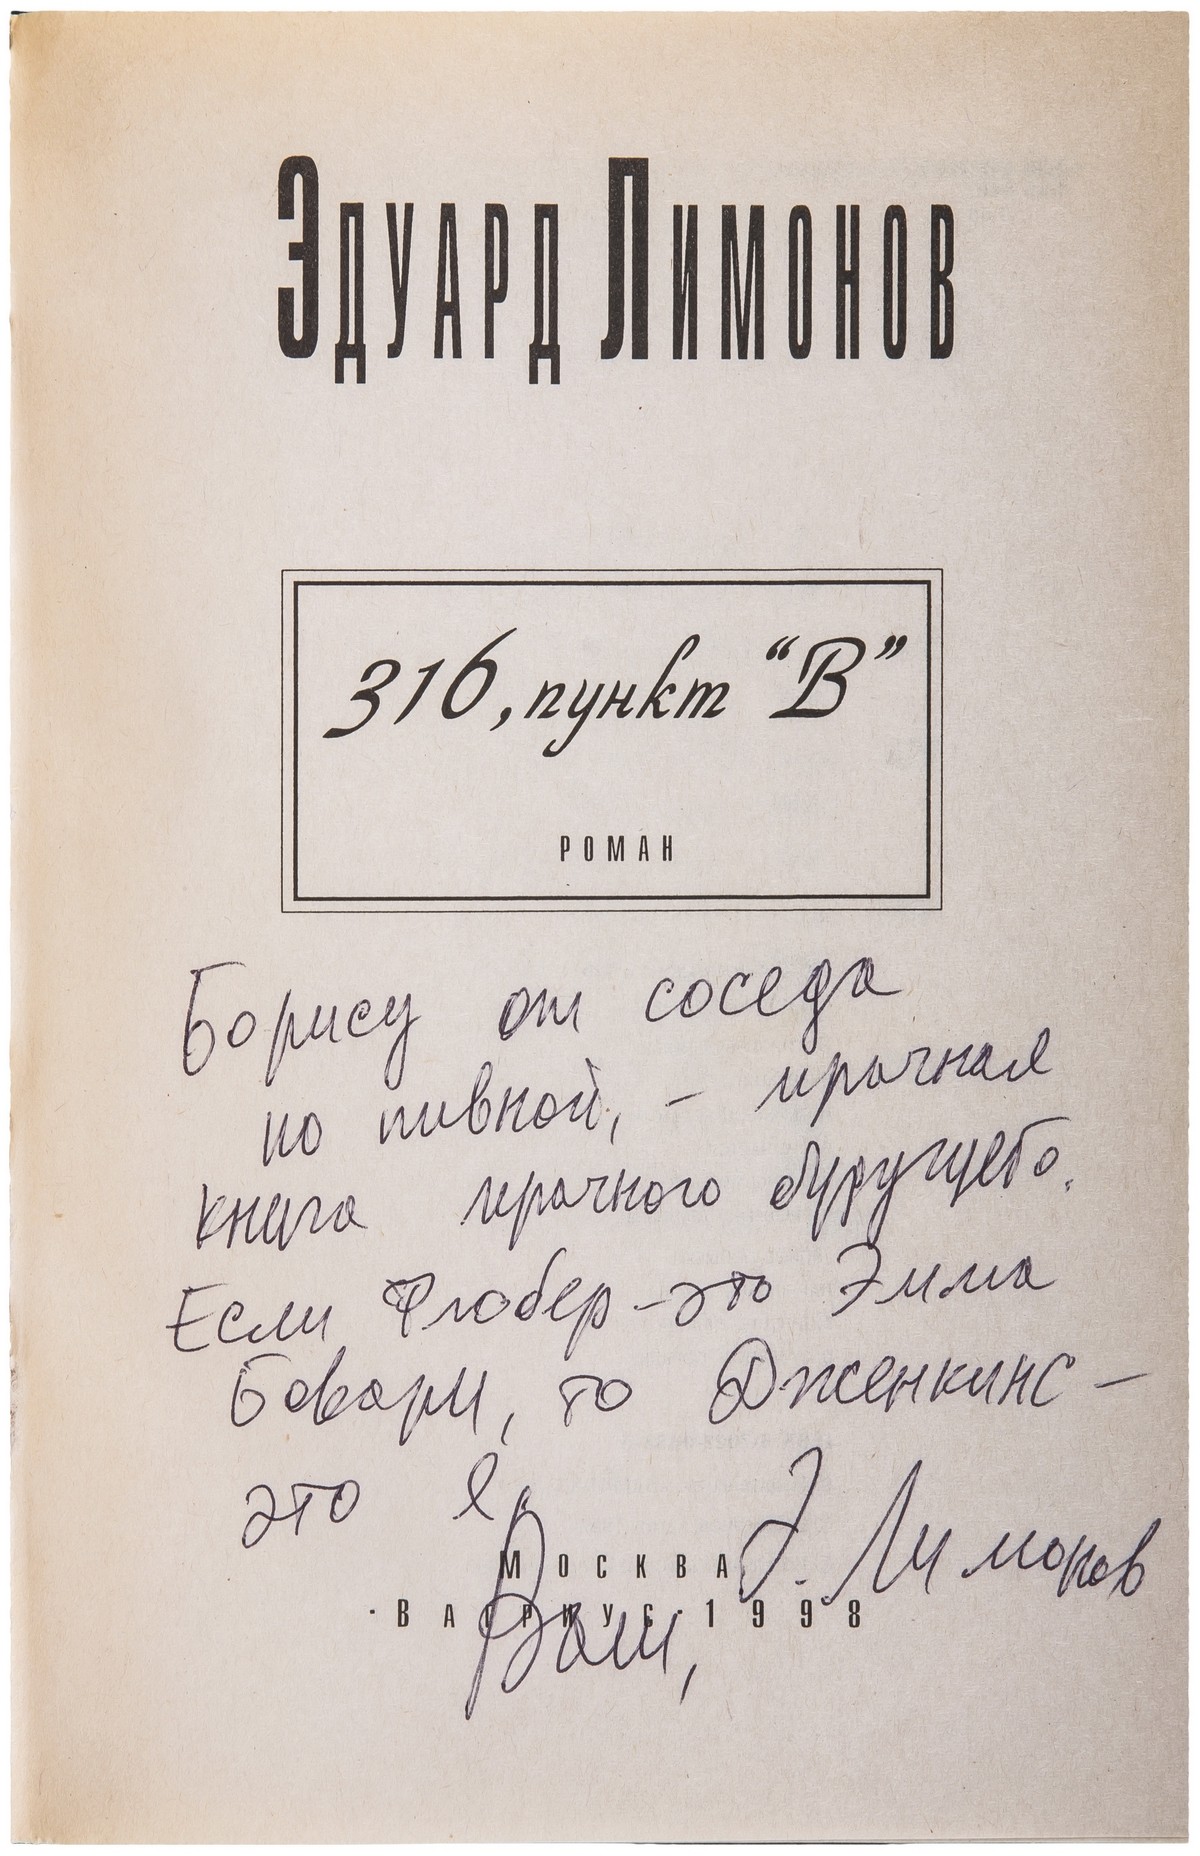 Эдуард Лимонов
316, пункт “В”
РОМАН
Борису от соседа
по пивной, – мрачная
книга мрачного будущего.
Если Флобер – это Эмма
Бовари, то Дженкинс –
это я,
Э. Лимонов
МОСКВА
·ВАГРИУС·1998
Ваш,